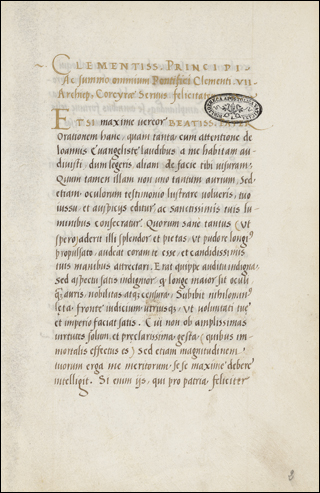 CLEMENTISS. PRINCIPI
Ac summo omnium Pontifici Clementi. VII
Archiep. Corcyræ Seruus felicitatem
ETSI maxime uereor BEATISS. PATER
Orationem hanc, quam tanta cum attentione de
Ioannis Euangelistæ laudibus a me habitam au
diuisti, dum legeris, aliam de facie tibi uisuram.
Quum tamen illam non uno tantum aurium, Sed
etiam, oculorum testimonio lustrare uolueris, tuo
iussu, et auspicijs editur, ac Sanctissimis tuis lu
minibus consecratur. Quorum sane tantus (ut
spero) aderit illi splendor et pietas, ut pudore longi9
propulsato, audeat coram te esse, et candidissimis
tuis manibus attrectari. Erit quippe auditu indigna,
sed aspectu satis indignior, q longe maior sit oculi
q auris, nobilitas atq; censura. Subibit nihilomin9
læta, fronte iudicium utrunq;, ut uoluntati tuæ
et imperio faciat satis. Cui non ob amplissimas
uirtutes solum, et preclarissima, gesta, (quibus im
mortalis effectus es) sed etiam magnitudinem
tuorum erga me meritorum, se se maxime debere
intelligit. Si enim ijs, qui pro patria, feliciter